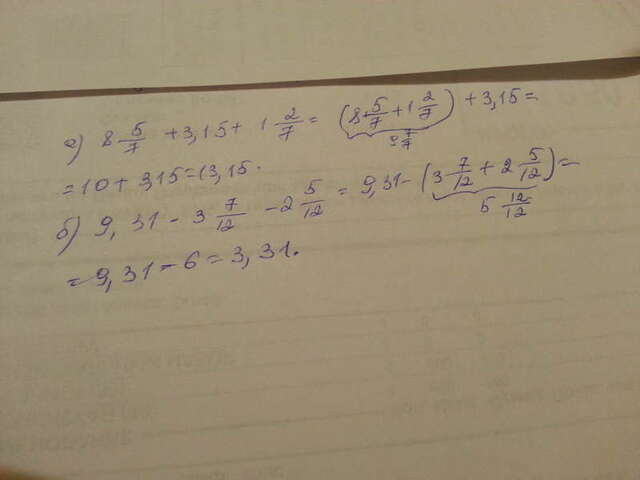 а) 8 5/7 + 3,15 + 1 2/7 = (8 5/7 + 1 2/7) + 3,15 =
9 7/7
= 10 + 3,15 = 13,15.
б) 9,31 - 3 7/12 - 2 5/12 = 9,31 - (3 7/12 + 2 5/12) =
5 12/12
= 9,31 - 6 = 3,31.